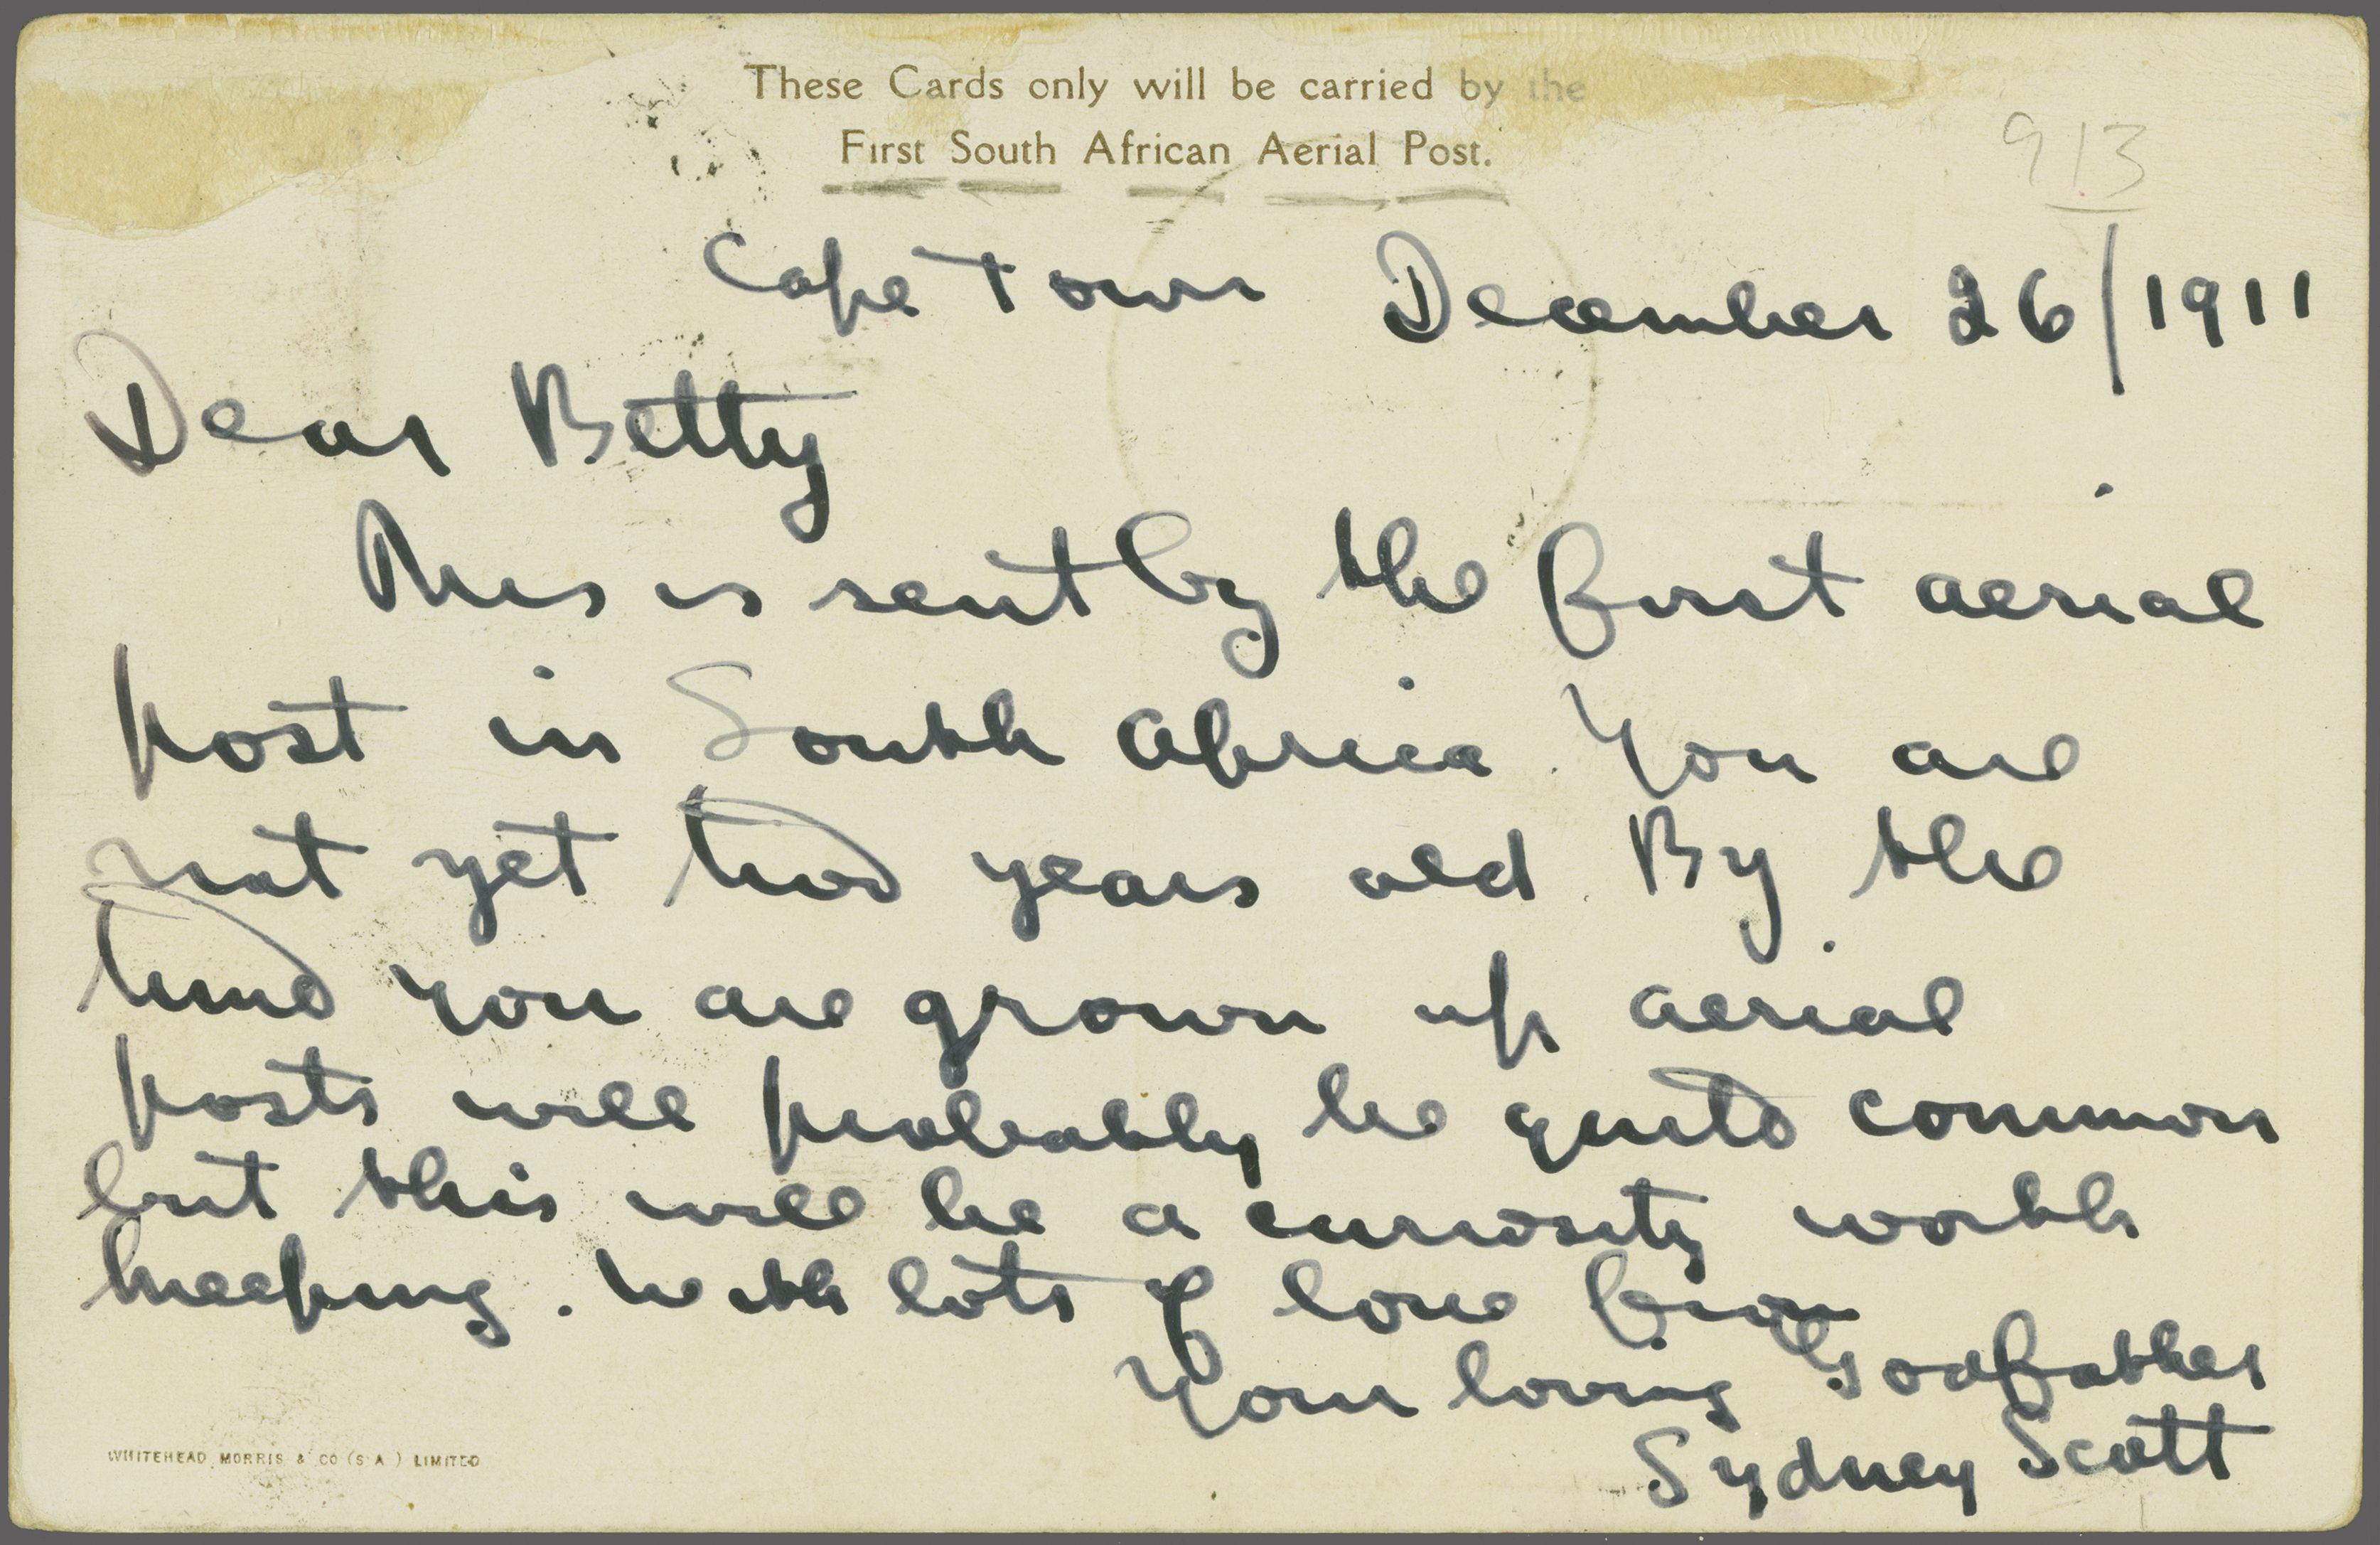 These Cards only will be carried by the
First South African Aerial Post.
913
Cape Town December 26/1911
Dear Betty
This is sent by the first aerial
post in South Africa. You are
not yet two years old. By the
time you are grown up aerial
posts will probably be quite common
but this will be a curiosity worth
keeping. With lots of love from
Your loving Godfather
Sydney Scott
WHITEHEAD, MORRIS & CO (S A ) LIMITED